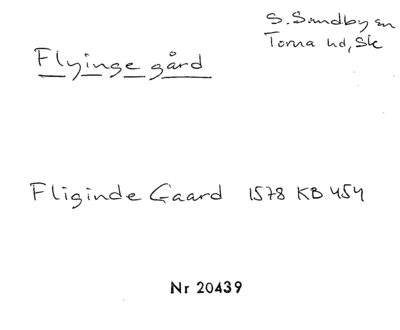 S. Sandby sn
Torna hd, Sk
Flyinge gård
Fliginde Gaard 1578 KB 454
Nr 20439